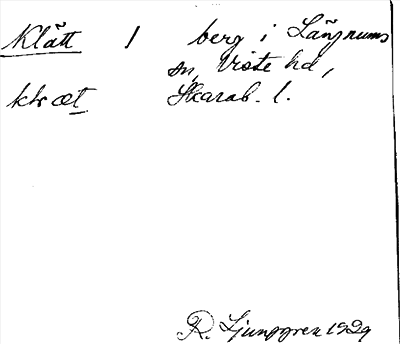 Klätt 1 berg i Långnums
sn, Viste hd,
klæt Skarab. l.
R. Ljunggren 1929